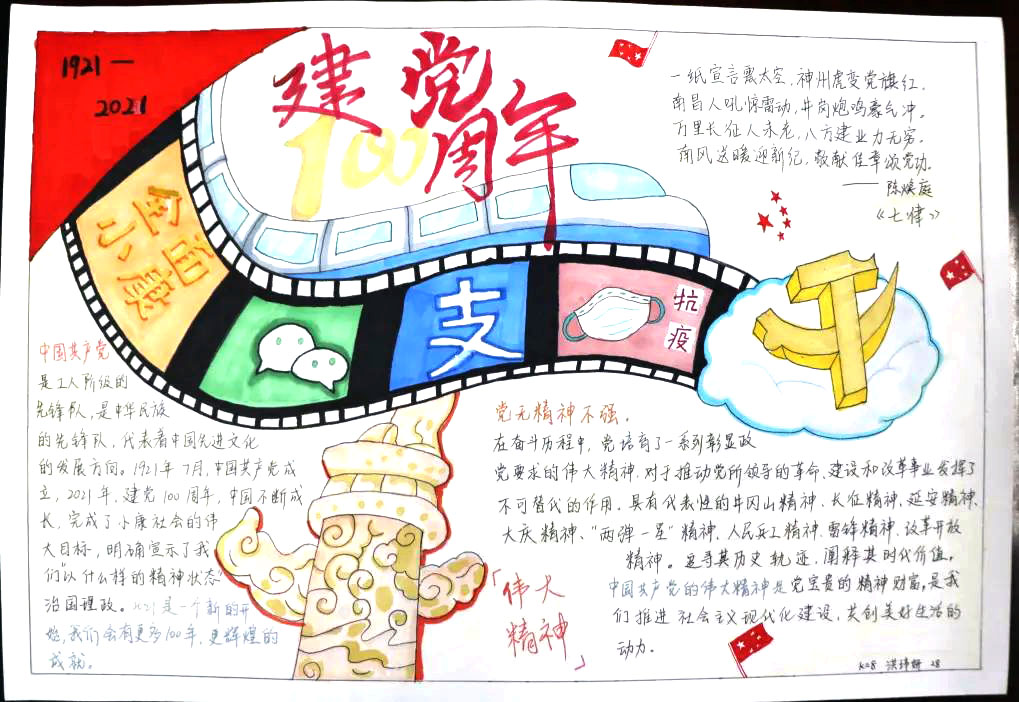 1921—
2021
建党
100周年
一纸宣言震太空，神州虎变党旗红。
南昌人吼惊雷动，井岗炮鸣豪气冲。
万里长征人未老，八方建业力无穷。
南风送暖迎新纪，敬献佳章颂党功。
——陈焕庭
《七律》
全面
小康
支
抗
疫
中国共产党
是工人阶级的
先锋队，是中华民族
的先锋队，代表着中国先进文化
的发展方向。1921年7月，中国共产党成
立，2021年，建党100周年，中国不断成
长，完成了小康社会的伟
大目标，明确宣示了我
们“以什么样的精神状态”
治国理政。2021是一个新的开
始，我们会有更多100年，更辉煌的
成就。
党无精神不强。
在奋斗历程中，党培育了一系列彰显政
党要求的伟大精神，对于推动党所领导的革命、建设和改革事业发挥了
不可替代的作用。具有代表性的井冈山精神、长征精神、延安精神、
大庆精神、“两弹一星”精神、人民兵工精神、雷锋精神、改革开放
精神。追寻其历史轨迹，阐释其时代价值。
中国共产党的伟大精神是党宝贵的精神财富，是我
们推进社会主义现代化建设，共创美好生活的
动力。
「伟大
精神」
28